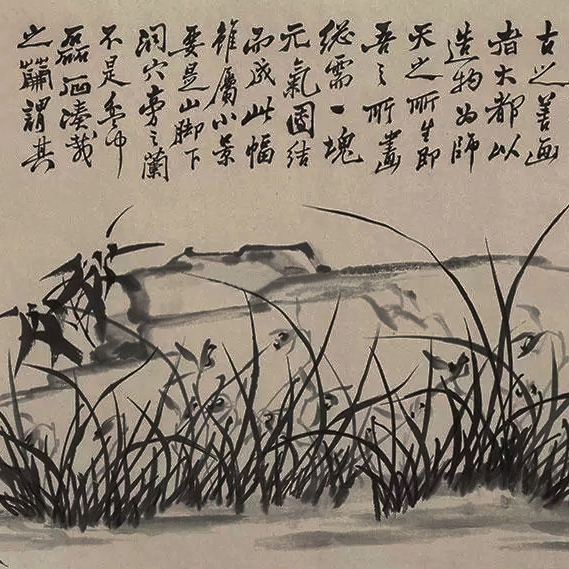 古之善画
者大都以
造物为師
天之所生即
吾之所畫
總需一塊
元氣團結
而成此幅
雖屬小景
要是山脚下
洞穴旁之蘭
不是盆中
磊石凑栽
之蘭謂其